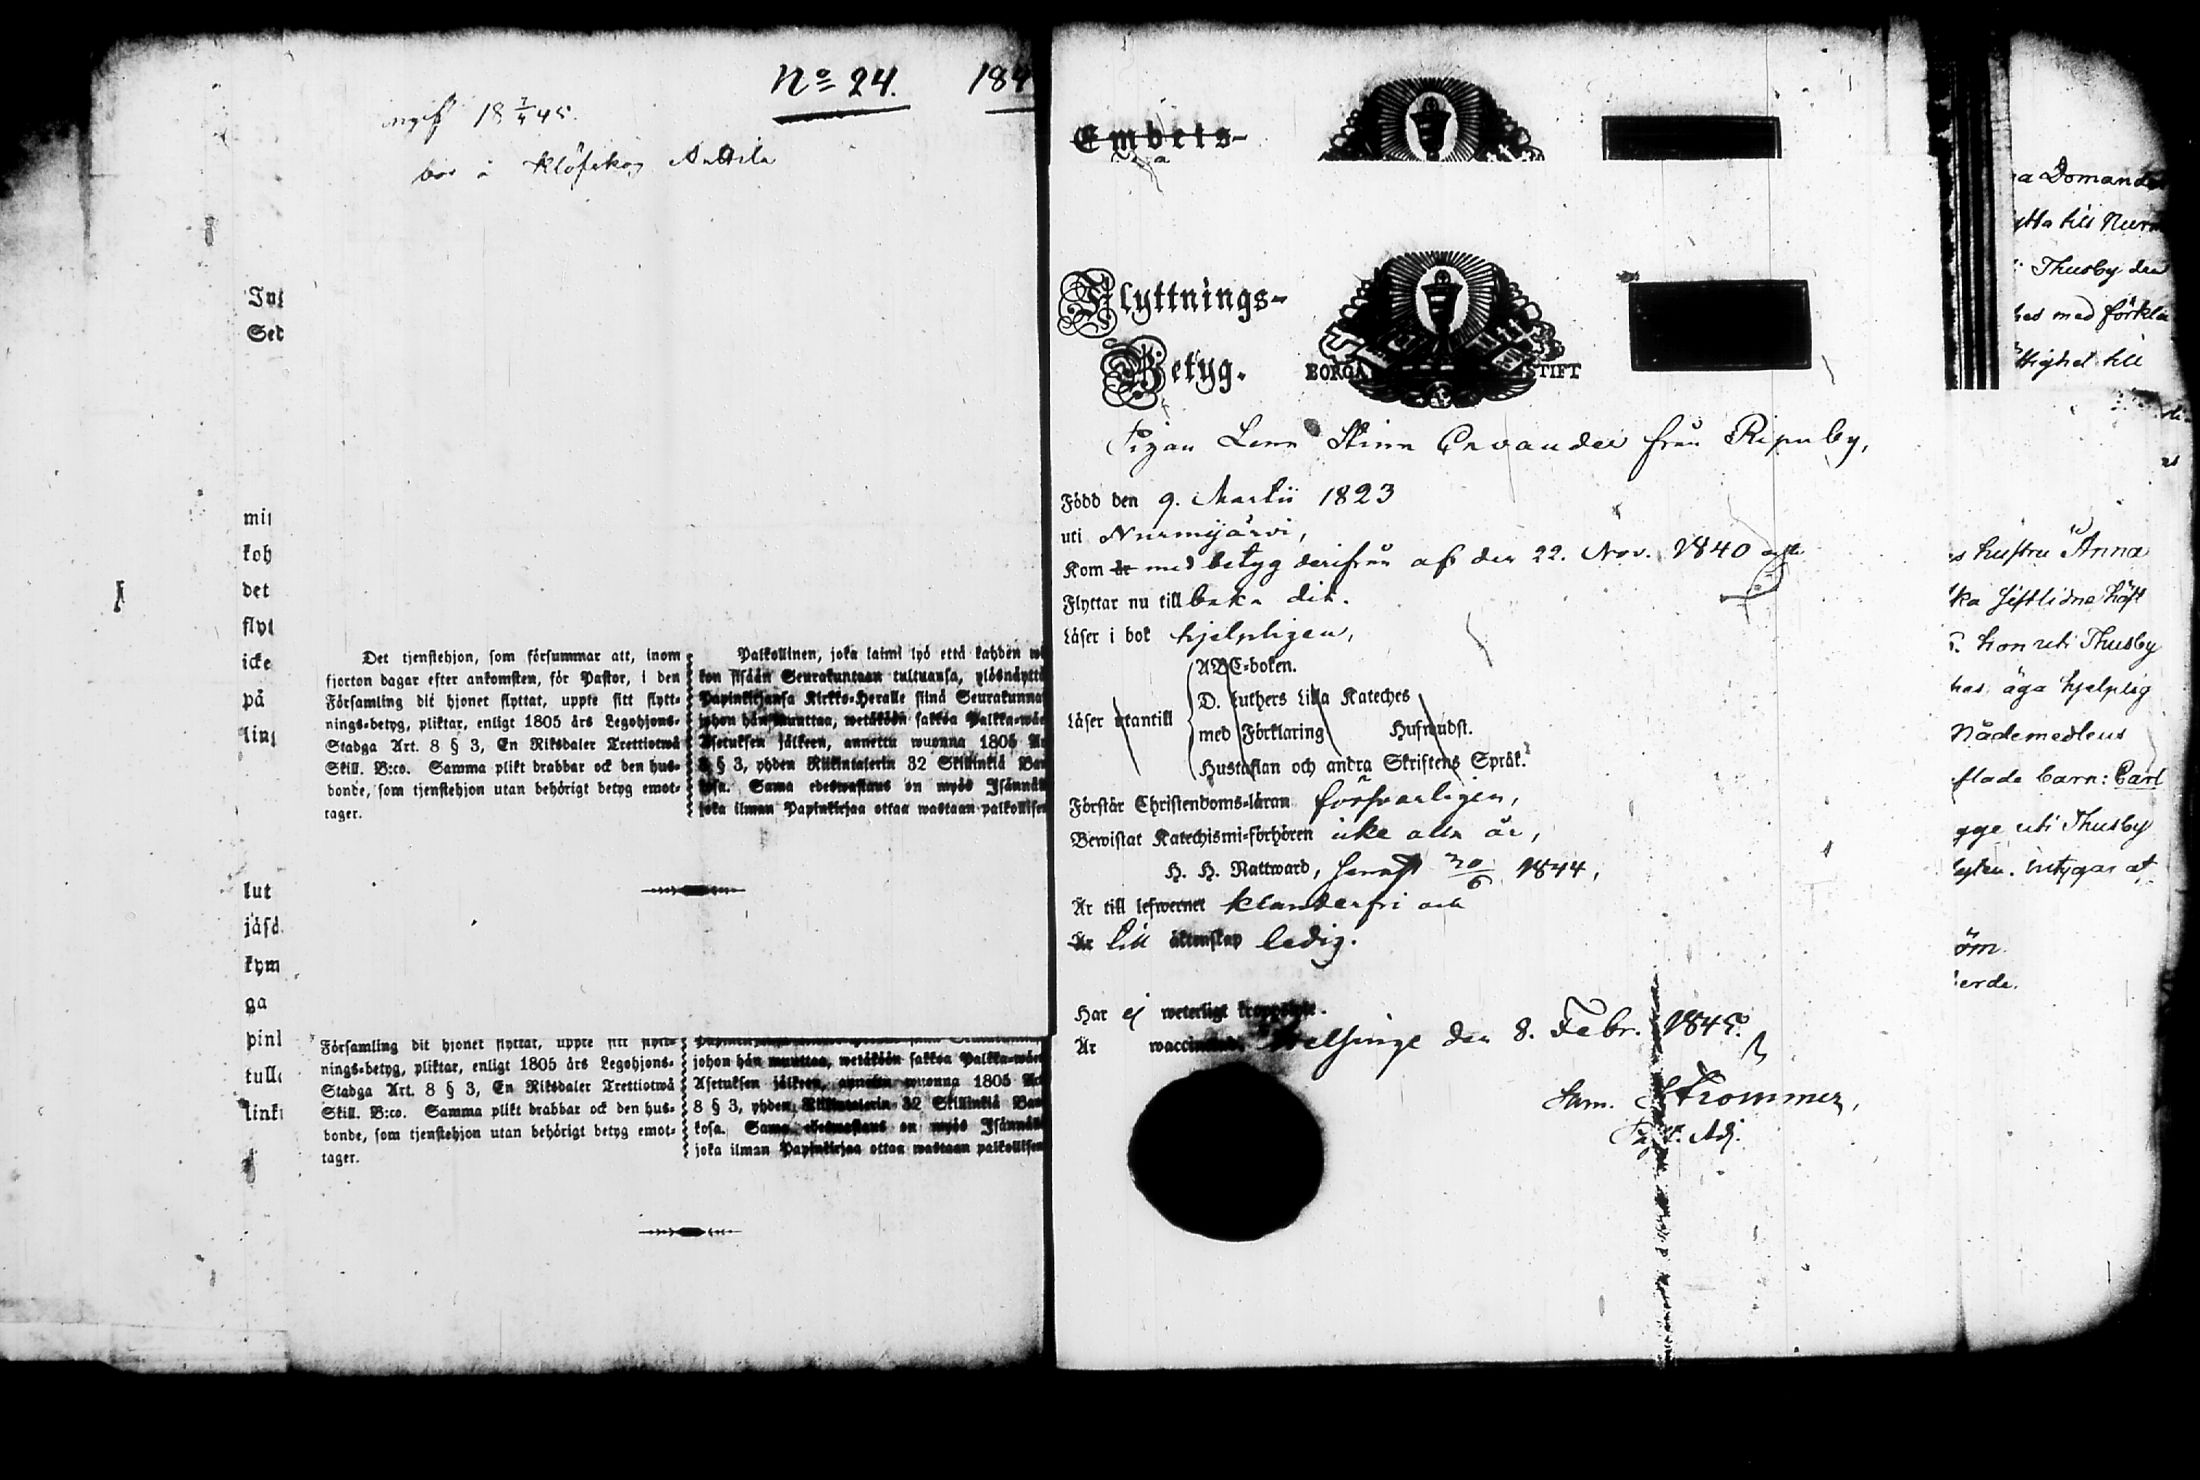 No 24. 184
18 7/4 45.
bor å Klöfskog Anttila
Inf
Sed
mit
koh
det
flyt
icke
på
ling
lut
jäsd
kym
ga
pinl
tull
link
Det tjenstehjon, som försummar att, inom
fjorton dagar efter ankomsten, för Pastor, i den
Församling dit hjonet flyttat, uppte sitt flytt-
nings-betyg, pliktar, enligt 1805 års Legohjons-
Stadga Art. 8 § 3, En Riksdaler Trettiotwå
Skill. B:co. Samma plikt drabbar ock den hus-
bonde, som tjenstehjon utan behörigt betyg emot-
tager.
Palkollinen, joka laimi lyö että kahden wi
kon sisään Seurakuntaan tultuansa, ylösnäyttä
Papinkirjansa Kirkko-Heralle siinä Seurakunna
johon hän muuttaa, wetäköön sakkoa Palkka-wäe
Asetuksen jälkeen, annettu wuonna 1805 Ar
8 § 3, yhden Riikintalerin 32 Skillinkiä Ban
kosa. Sama edeswastaus on myös Isännäll
joka ilman Papinkirjaa ottaa wastaan palkollisen
Församling dit hjonet flyttat, uppte sitt flytt-
nings-betyg, pliktar, enligt 1805 års Legohjons-
Stadga Art. 8 § 3, En Riksdaler Trettiotwå
Skill. B:co. Samma plikt drabbar ock den hus-
bonde, som tjenstehjon utan behörigt betyg emot-
tager.
johon hän muuttaa, wetäköön sakkoa Palkka-wäe
Asetuksen jälkeen, annettu wuonna 1805 Ar
8 § 3, yhden Riikintalerin 32 Skillinkiä Ban
kosa. Sama edeswastaus on myös Isännäll
joka ilman Papinkirjaa ottaa wastaan palkollisen
Embets-
Flyttnings-
Betyg.
BORGÅ STIFT
Pigan Lena Stina Ervander från Ripuby,
Född den 9. Martii 1823
uti Nurmijärvi,
Kom år med betyg derifrån af den 22. Nov. 1840
Flyttar nu tillbaka dit.
Läser i bok hjelpligen,
Läser utantill
ABC-boken.
D. Luthers Lilla Kateches
med Förklaring Husandst.
Hustaflan och andra Skriftens Språk.
Förstår Christendoms-läran försvarligen,
Bewistat Katechismi-förhören icke alla år,
H. H. Nattward, senast 30/6 1844,
Är till lefwernet klanderfri och
Är till äktenskap ledig.
Har ej weterligt kroppslyte.
Är waccinerad. Helsinge den 8. Febr. 1845.
Sam. Strommer,
Adj.
a Domande
ytta till Nurm
i Thusby den
hes med förkla
ttighet till
s hustru Anna
hon uti Thusby
has äga hjelplig
Nådemedlens
flade barn: Carl
gge uti Thusby
intygar at
öm
erde.